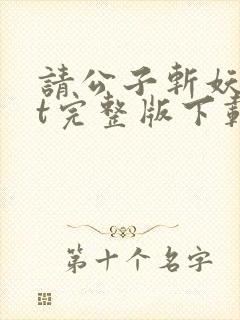 請公子斬妖
t完整版下載
第十个名字